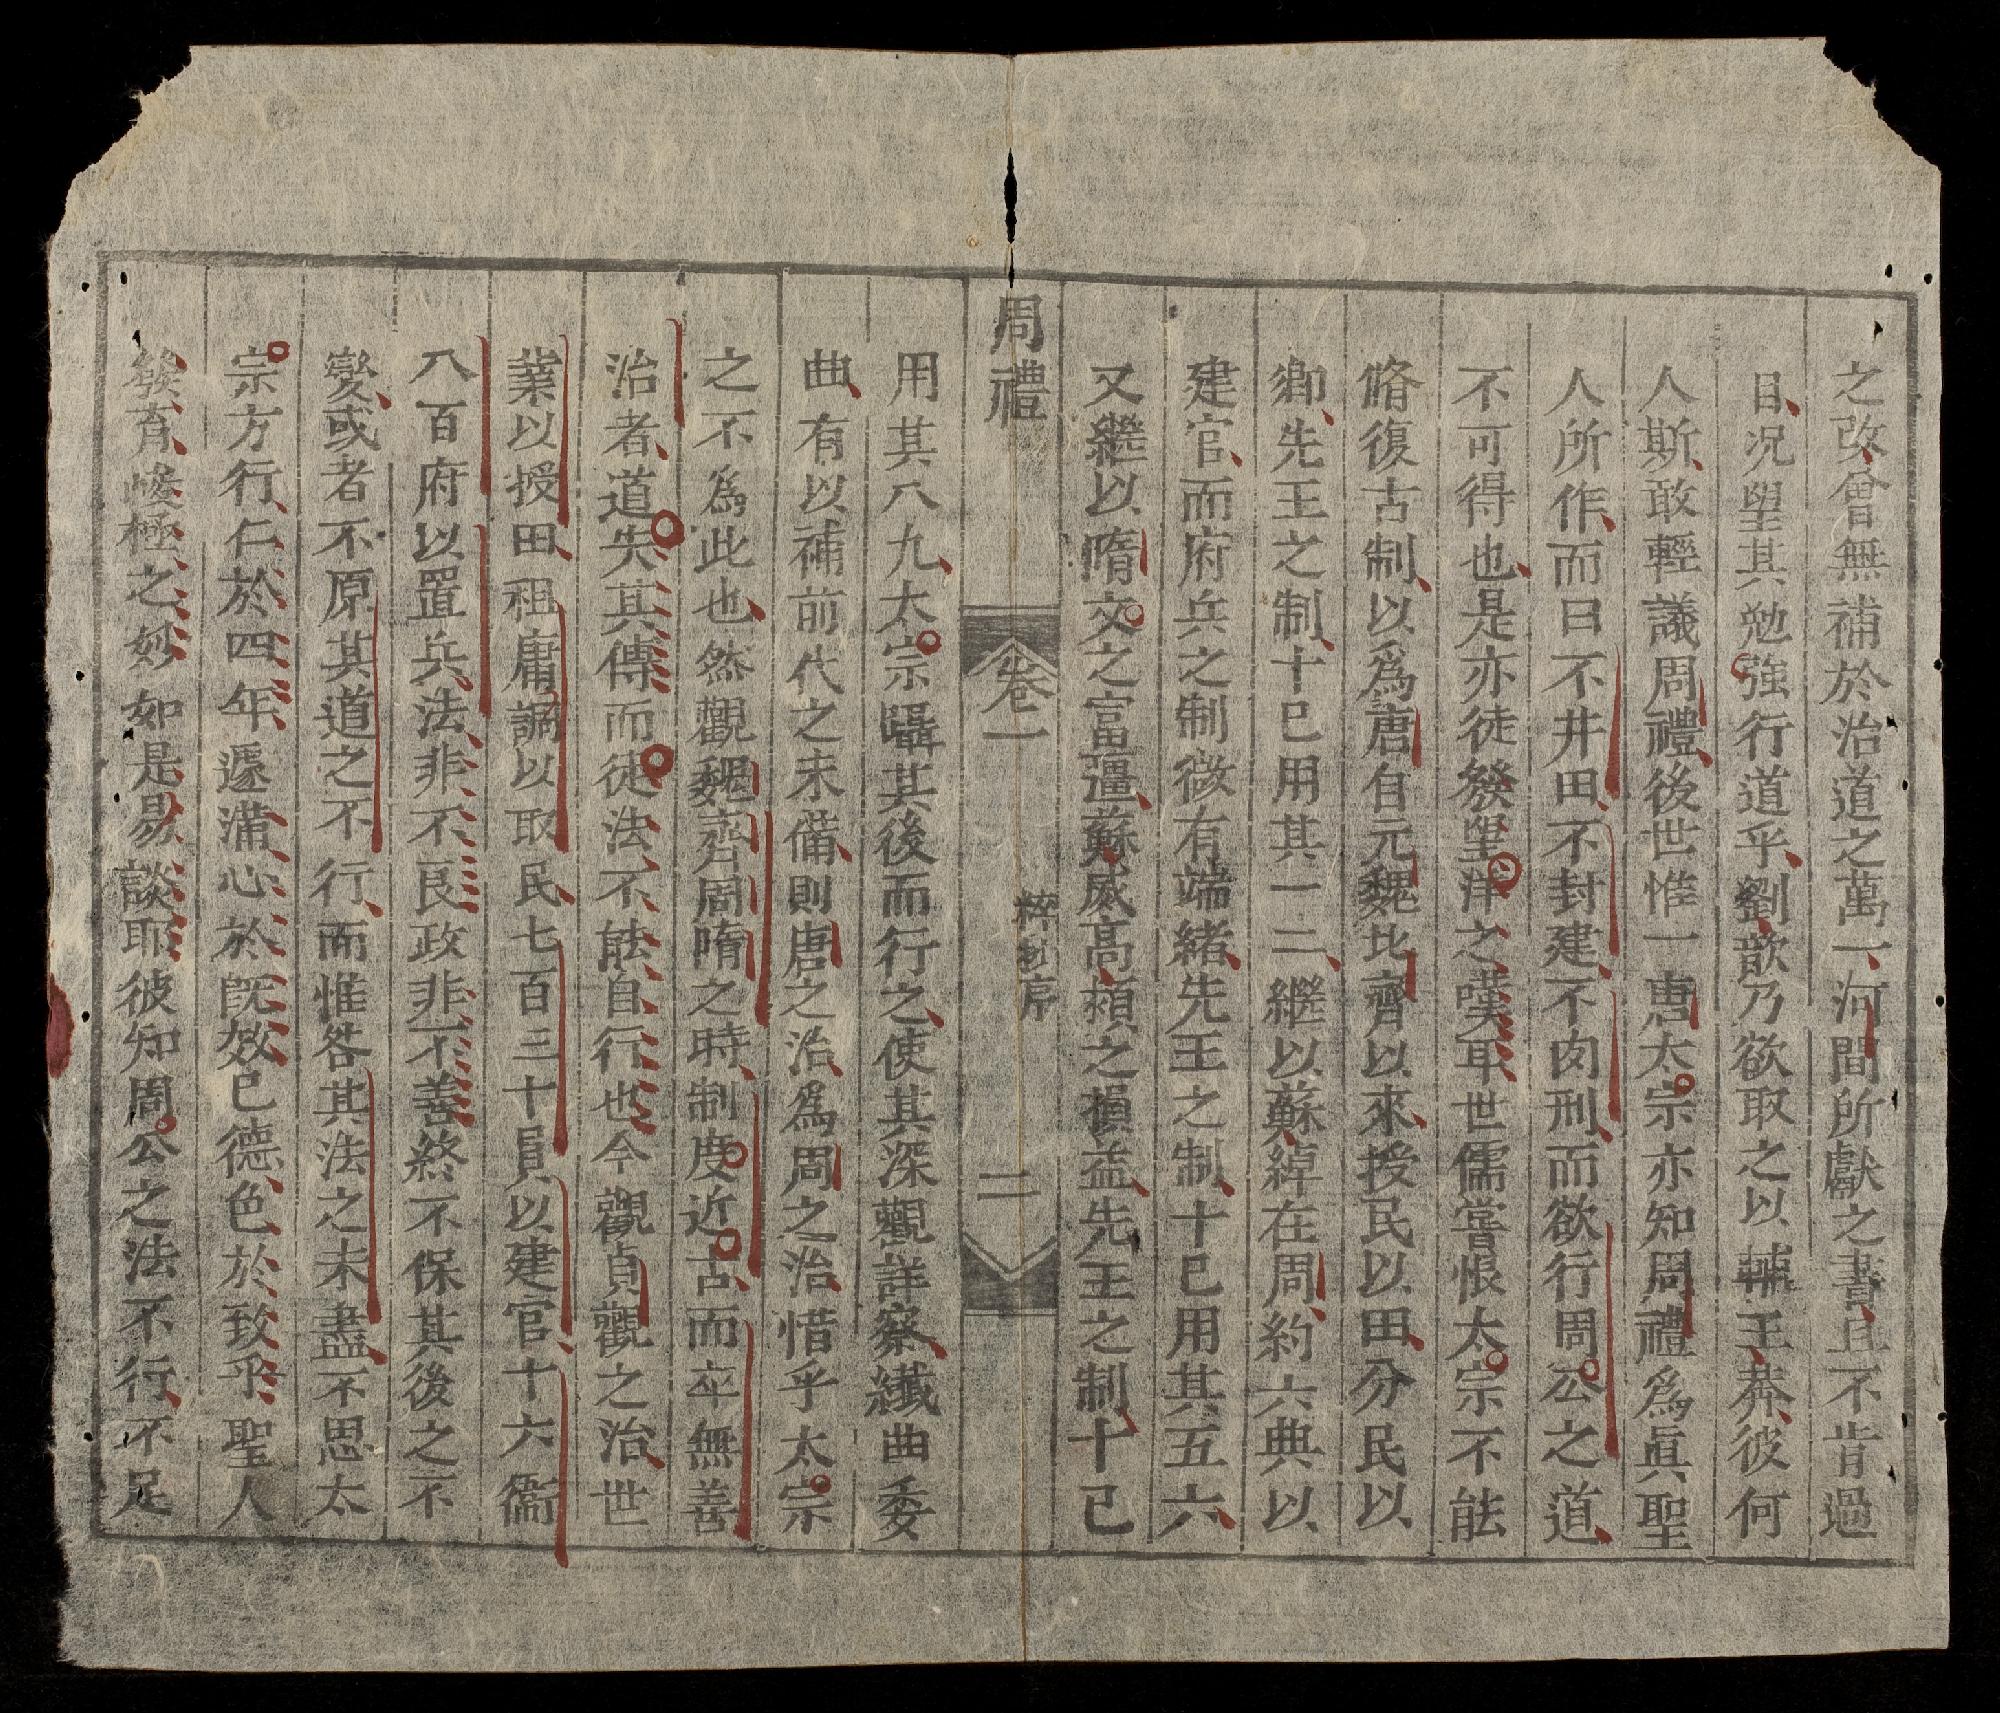 之改曾無補於治道之萬一河間所獻之書且不肯過
目况望其勉強行道乎劉歆乃欲取之以輔王莾彼何
人斯敢輕議周禮後世惟一唐太宗亦知周禮爲眞聖
人所作而曰不井田不封建不肉刑而欲行周公之道
不可得也是亦徒發望洋之嘆耳世儒嘗恨太宗不能
脩復古制以爲唐自元魏北齊以來授民以田分民以
鄉先王之制十已用其一二繼以蘇綽在周約六典以
建官而府兵之制微有端緒先王之制十已用其五六
又繼以隋文之富疆蘇威高熲之損益先王之制十已
周禮 卷一 序 二
用其八九太宗躡其後而行之使其深觀詳察纖曲委
曲有以補前代之未備則唐之治爲周之治惜乎太宗
之不爲此也然觀魏齊周隋之時制度近古而卒無善
治者道失其傳而徒法不能自行也今觀貞觀之治世
業以授田租庸調以取民七百三十員以建官十六衞
八百府以置兵法非不良政非不善終不保其後之不
變或者不原其道之不行而惟咎其法之未盡不思太
宗方行仁於四年遽滿心於旣效已德色於致乎聖人
發育峻極之妙如是易談耶彼知周公之法不行不足